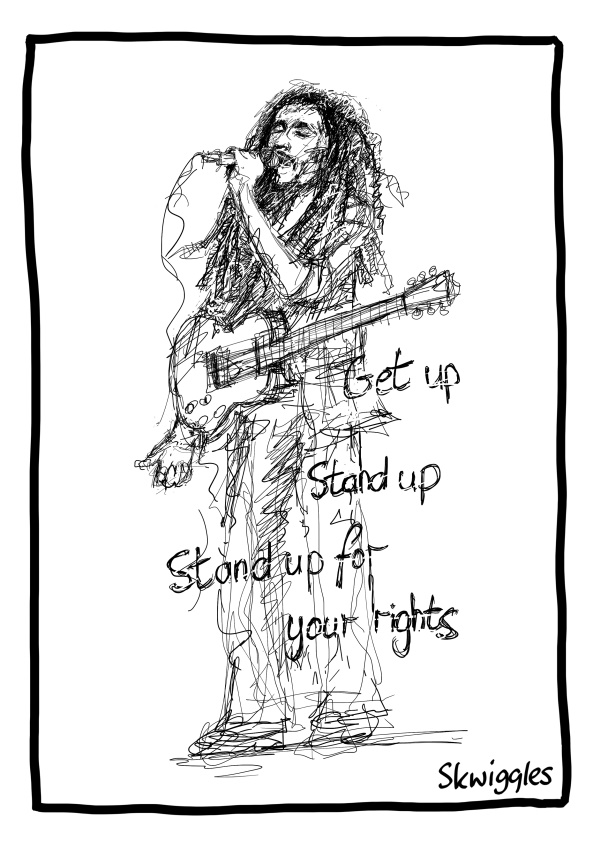 Get up
Stand up
Stand up for
your rights
Skwiggles